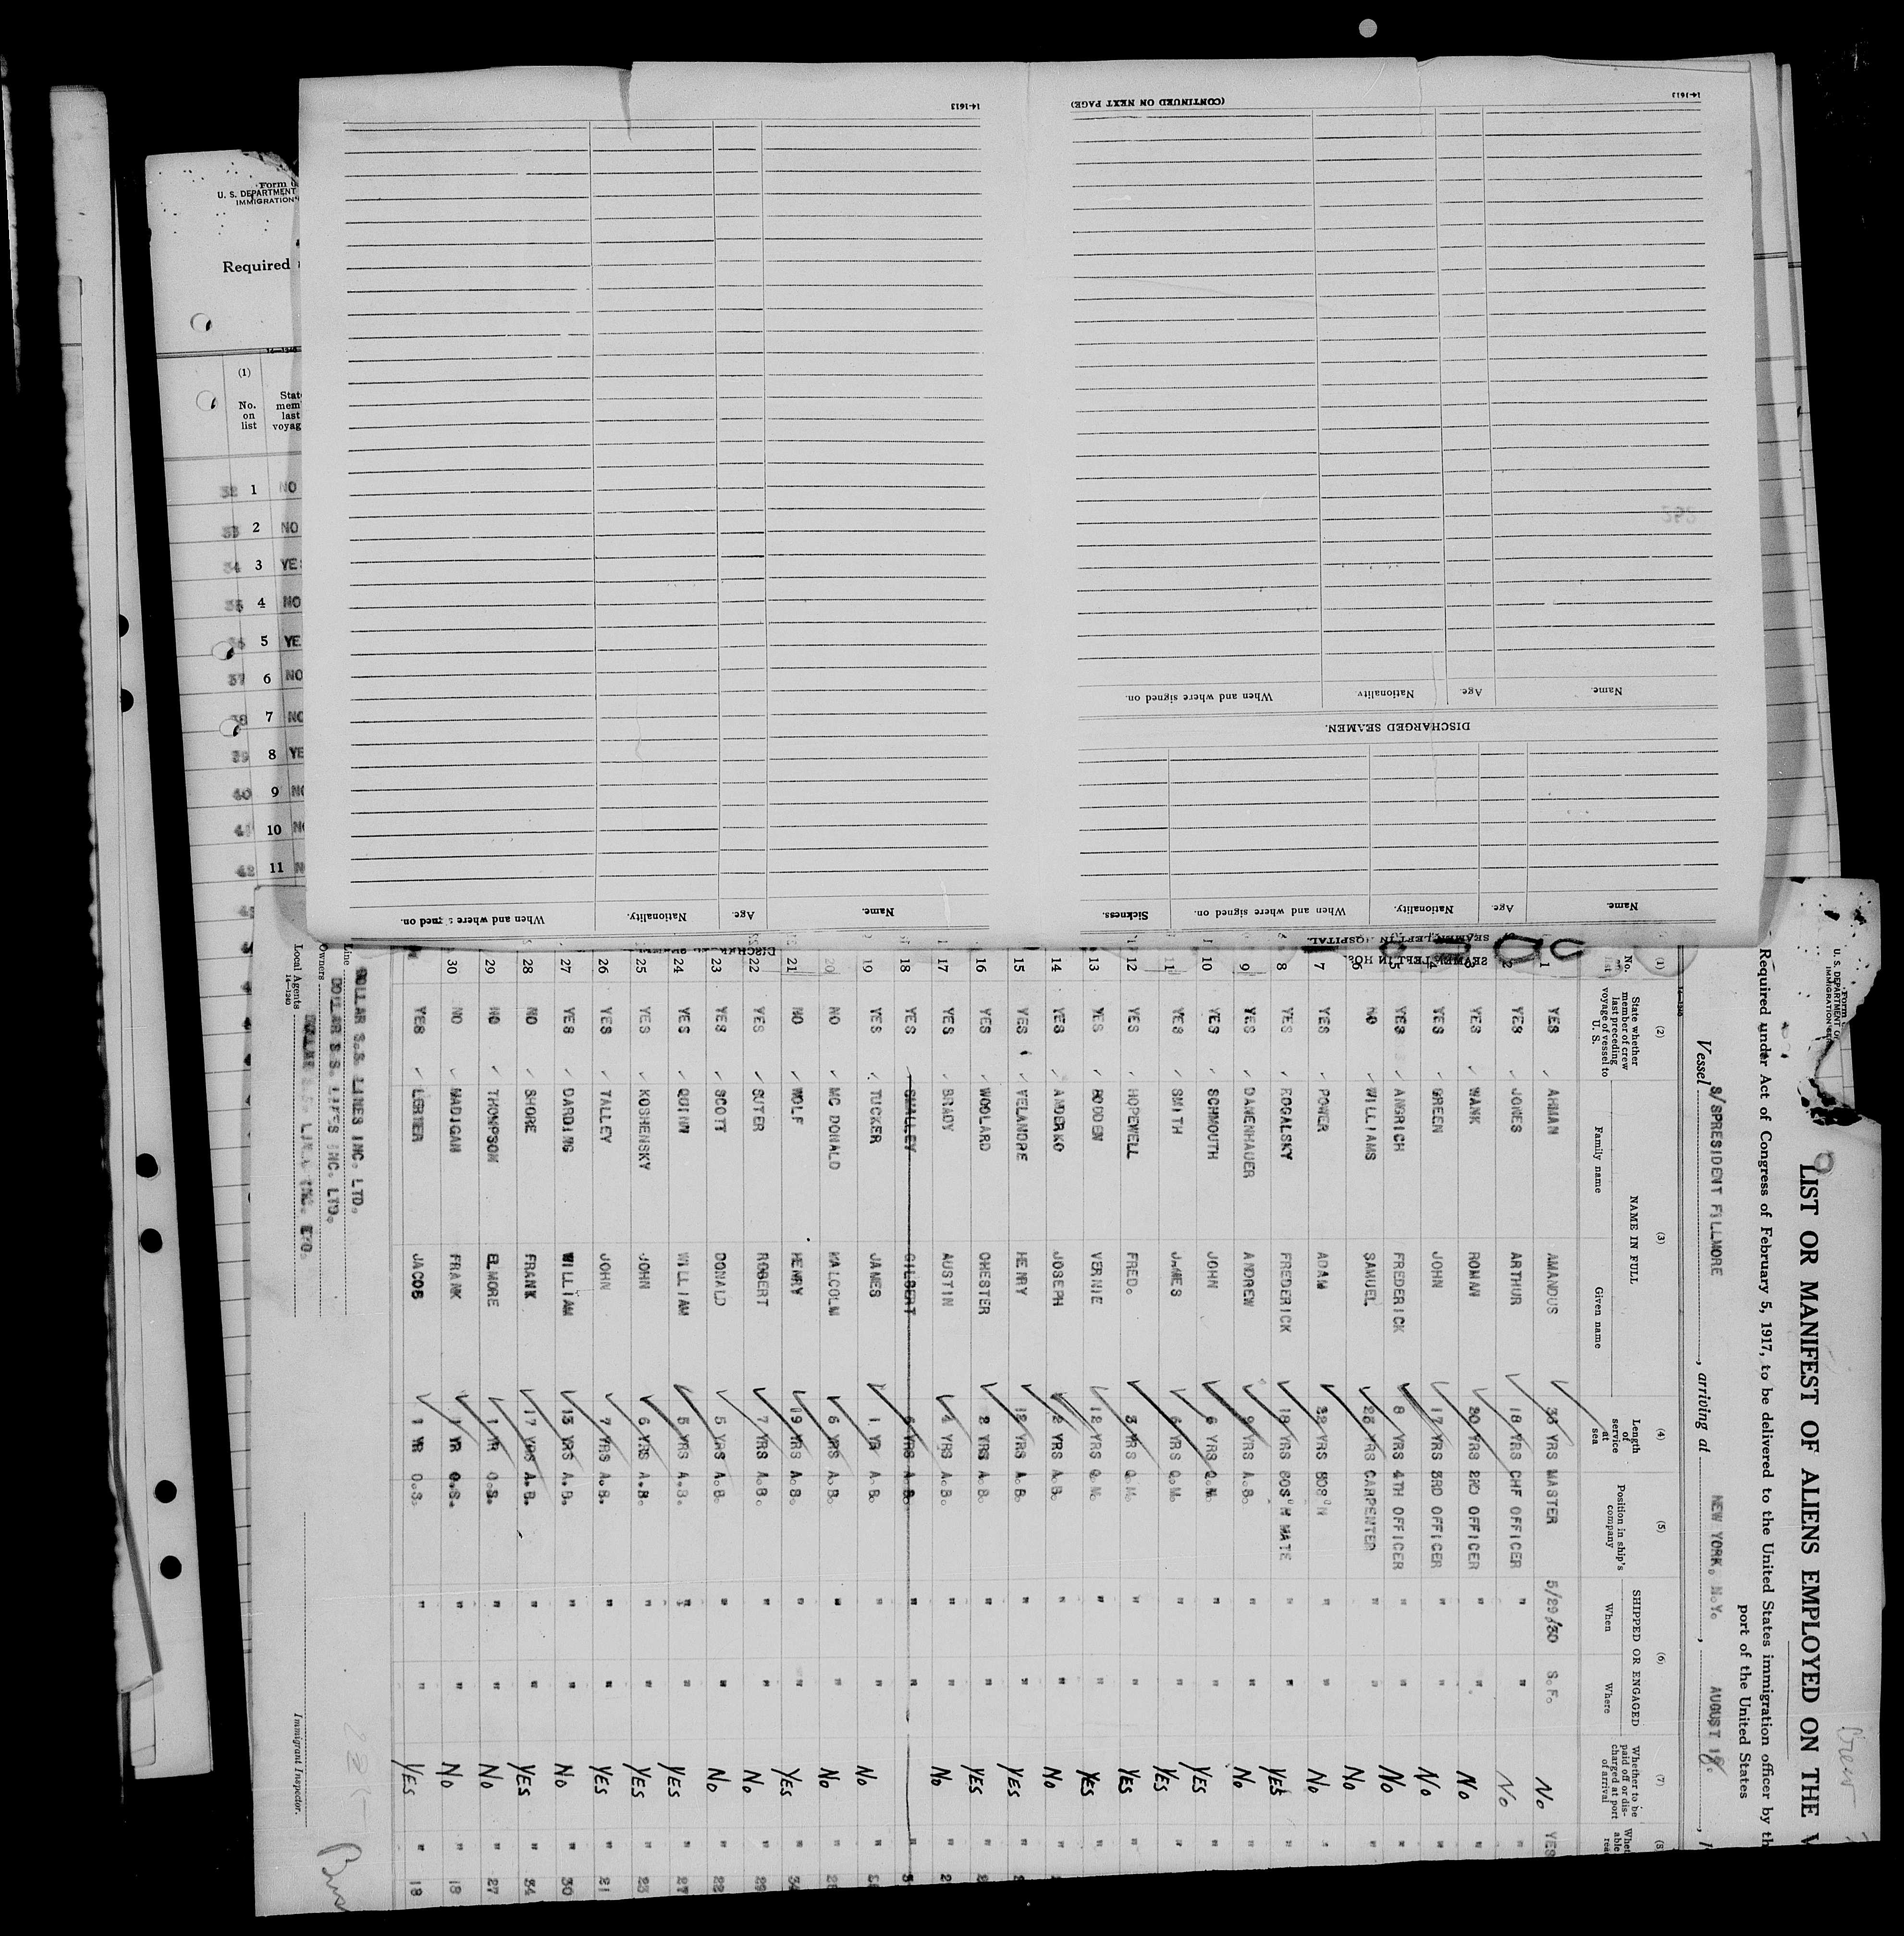 Form
U. S. DEPARTMENT
IMMIGRATION
Required
14—1240
(1)
No. on list
State
mem
last
voyag
32 1 NO
33 2 NO
34 3 YES
35 4 NO
36 5 YE
37 6 NO
38 7 NO
39 8 YE
40 9 NO
41 10 NO
42 11 N
14-1613
(CONTINUED ON NEXT PAGE)
14-1613
When and where signed on. Nationality. Age. Name.
DISCHARGED SEAMEN.
Name. Age. Nationality. When and where signed on. Sickness.
Name. Age. Nationality. When and where signed on.
SEAMEN LEFT IN HOSPITAL
U. S. DEPARTMENT OF
IMMIGRATION
LIST OR MANIFEST OF ALIENS EMPLOYED ON THE V
Crew
Required under Act of Congress of February 5, 1917, to be delivered to the United States immigration officer by th
port of the United States
Vessel S/SPRESIDENT FILLMORE, arriving at NEW YORK, N.Y., AUGUST 18, 1
14—1240
(1) (2) (3) (4) (5) (6) (7) (8)
No. on list
State whether member of crew last preceding voyage of vessel to U. S.
NAME IN FULL
Family name Given name
Length of service at sea
Position in ship's company
SHIPPED OR ENGAGED
When Where
Whether to be paid off or discharged at port of arrival
Whet able rea
1 YES AHMAN AMANDUS 33 YRS MASTER 5/29/30 S.F. No YES
2 YES JONES ARTHUR 18 YRS CHF OFFICER " " No "
3 YES WANK ROMAN 20 YRS 2ND OFFICER " " No "
4 YES GREEN JOHN 17 YRS 3RD OFFICER " " No "
5 YES ANGRICH FREDERICK 8 YRS 4TH OFFICER " " No "
6 NO WILLIAMS SAMUEL 25 YRS CARPENTER " " No "
7 YES POWER ADAM 32 YRS BOS'N " " No "
8 YES ROGALSKY FREDERICK 18 YRS BOS'N MATE " " YES "
9 YES DANENHAUER ANDREW 9 YRS A.B. " " No "
10 YES SCHMOUTH JOHN 6 YRS Q.M. " " YES "
11 YES SMITH JAMES 6 YRS Q.M. " " YES "
12 YES HOPEWELL FRED. 3 YRS Q.M. " " YES "
13 YES BODDEN VERNIE 12 YRS Q.M. " " YES "
14 YES ANDERKO JOSEPH 2 YRS A.B. " " No "
15 YES VELANDRE HENRY 12 YRS A.B. " " YES "
16 YES WOOLARD CHESTER 2 YRS A.B. " " YES "
17 YES BRADY AUSTIN 4 YRS A.B. " " No "
18 YES SMALLEY GILBERT 6 YRS A.B. " " "
19 YES TUCKER JAMES 1 YR A.B. " " No "
20 NO MC DONALD MALCOLM 6 YRS A.B. " " No "
21 NO WOLF HENRY 19 YRS A.B. " " YES " 34
22 YES SUTER ROBERT 7 YRS A.B. " " No "
23 YES SCOTT DONALD 5 YRS A.B. " " No " 22
24 YES QUINN WILLIAM 5 YRS A.B. " " YES " 27
25 YES KOSHENSKY JOHN 6 YRS A.B. " " YES " 23
26 YES TALLEY JOHN 7 YRS A.B. " " YES " 21
27 YES DARDING WILLIAM 13 YRS A.B. " " No " 30
28 NO SHORE FRANK 17 YRS A.B. " " YES " 34
29 NO THOMPSON ELMORE 1 YR O.S. " " No " 27
30 NO MADIGAN FRANK 1 YR O.S. " " No " 18
YES LERTER JACOB 1 YR O.S. " " YES " 18
Line DOLLAR S.S. LINES INC. LTD.
Owners DOLLAR S.S. LINES INC. LTD.
Local Agents DOLLAR S.S. LINES INC. LTD.
14—1240
Immigrant Inspector.